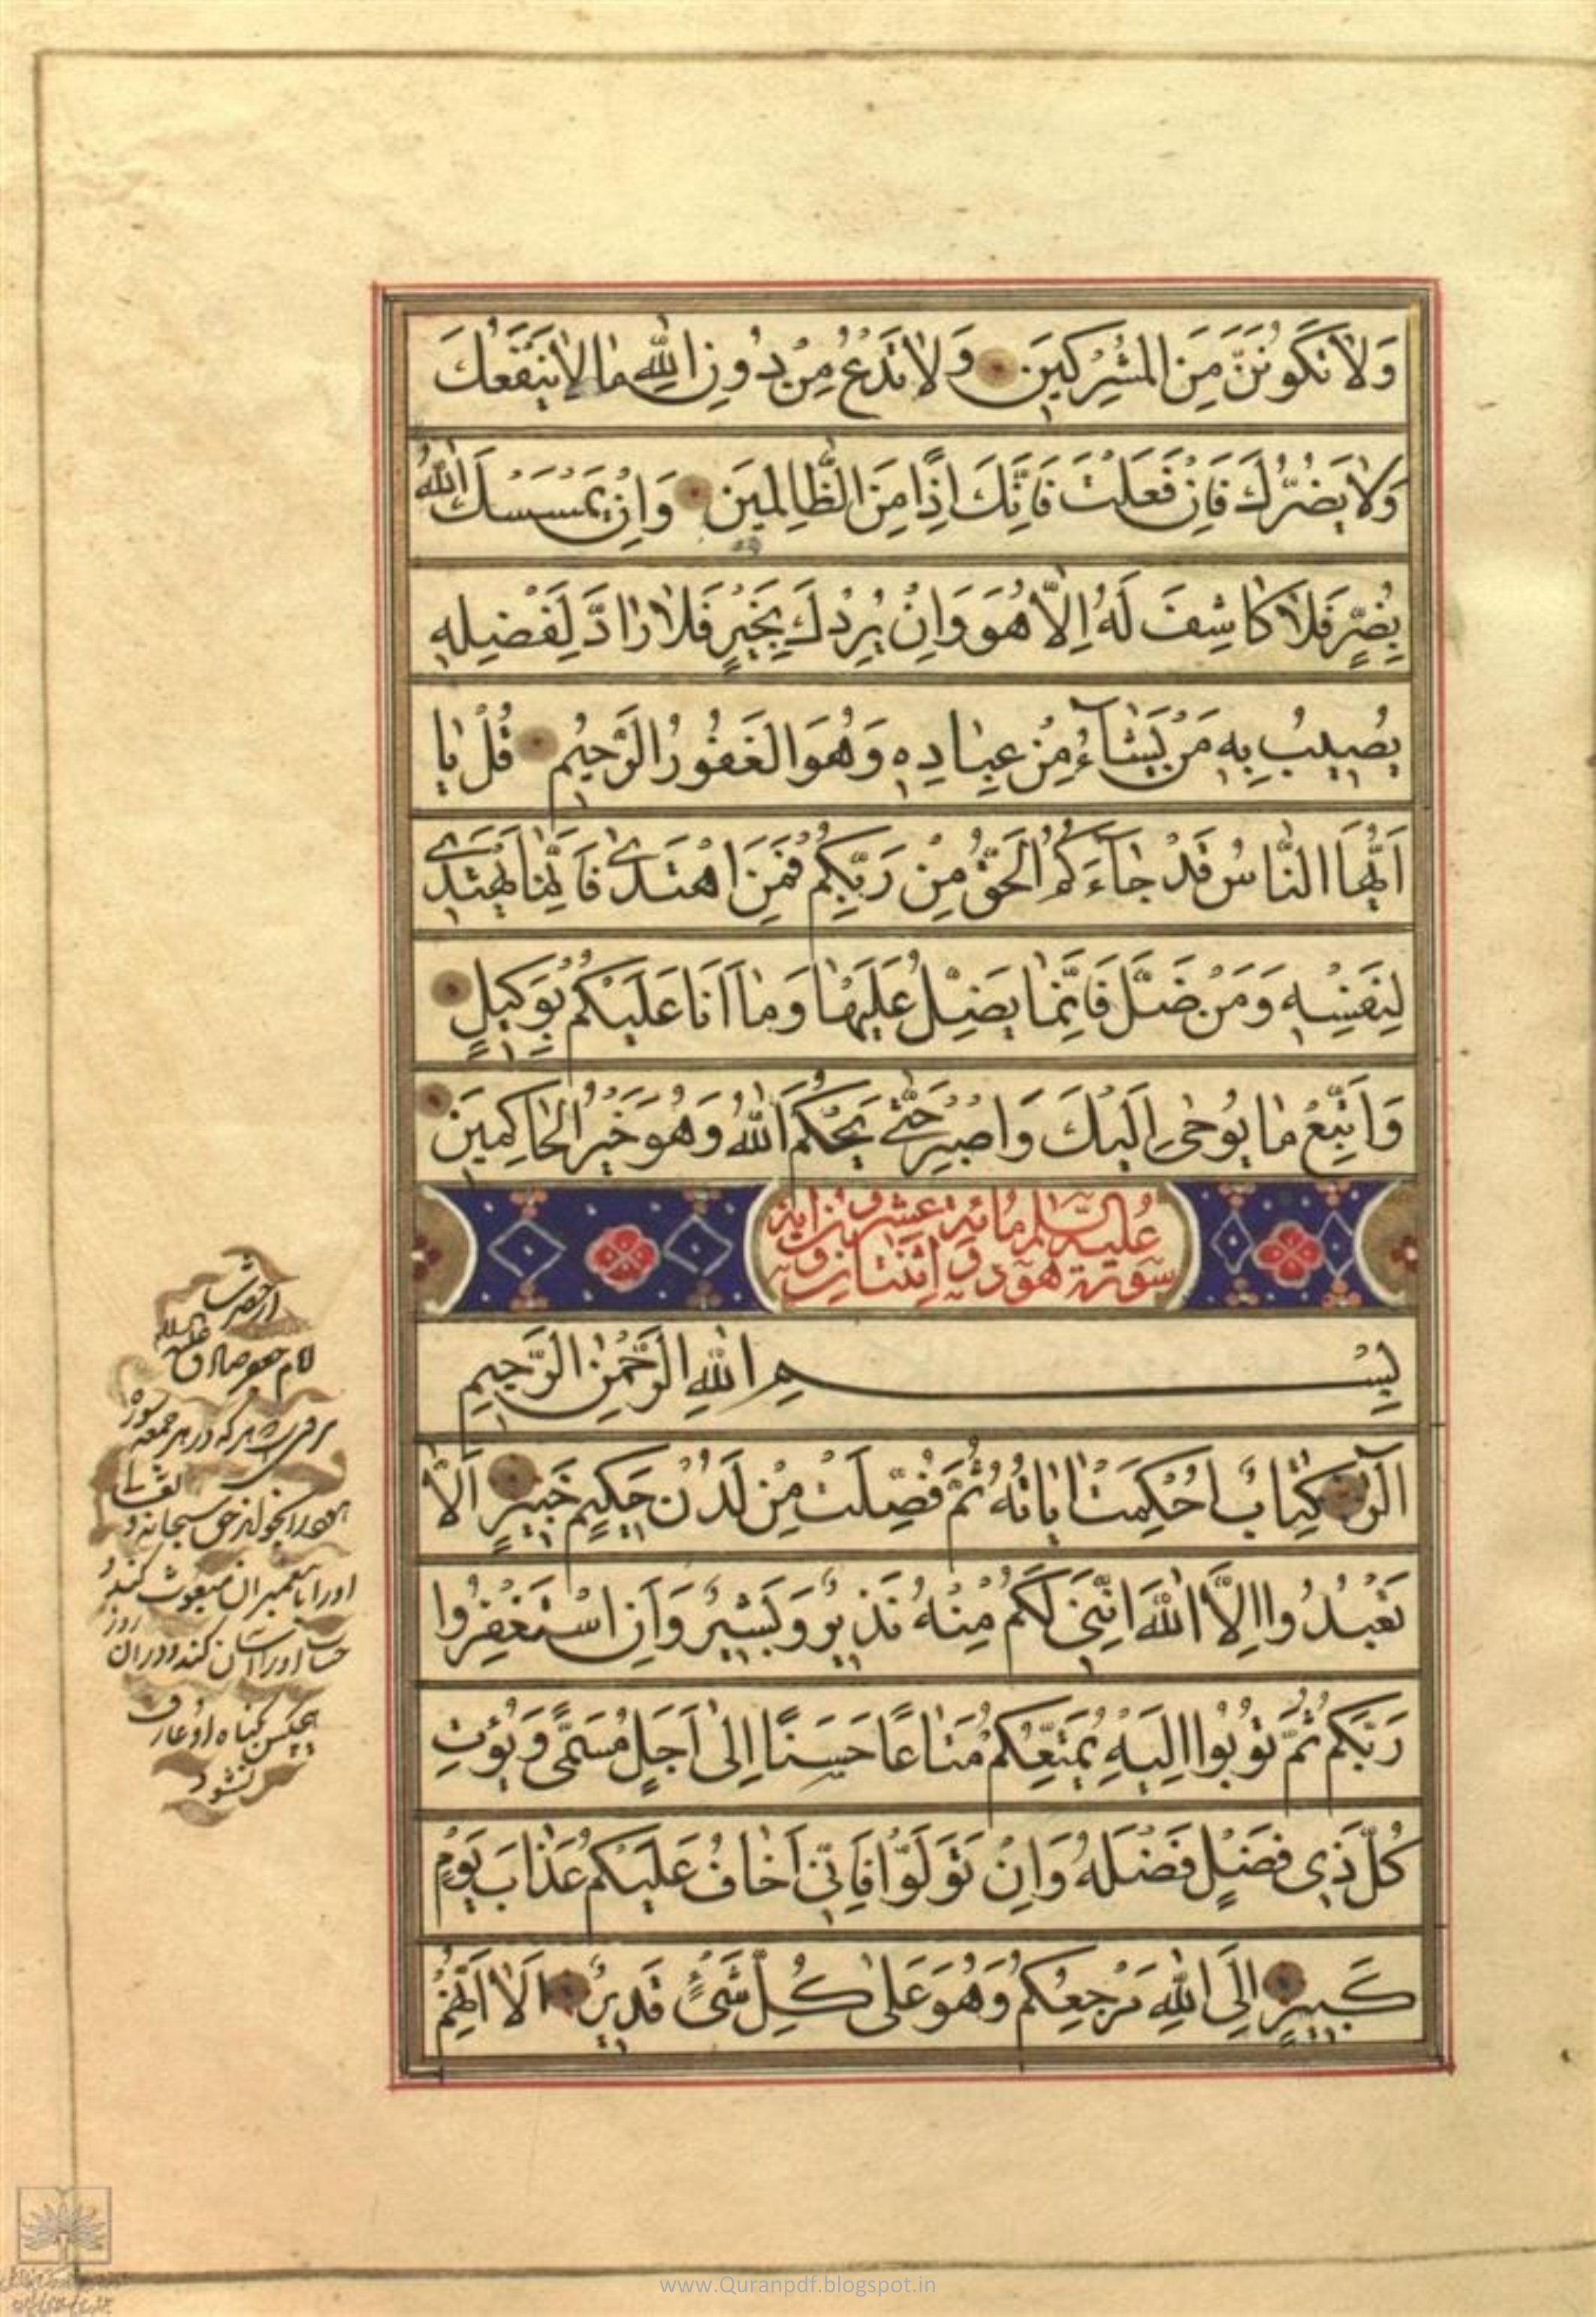 وَلَا تَكُونَنَّ مِنَ الْمُشْرِكِينَ وَلَا تَدْعُ مِنْ دُونِ اللَّهِ مَا لَا يَنْفَعُكَ
وَلَا يَضُرُّكَ فَإِنْ فَعَلْتَ فَإِنَّكَ إِذًا مِنَ الظَّالِمِينَ وَإِنْ يَمْسَسْكَ اللَّهُ
بِضُرٍّ فَلَا كَاشِفَ لَهُ إِلَّا هُوَ وَإِنْ يُرِدْكَ بِخَيْرٍ فَلَا رَادَّ لِفَضْلِهِ
يُصِيبُ بِهِ مَنْ يَشَاءُ مِنْ عِبَادِهِ وَهُوَ الْغَفُورُ الرَّحِيمُ قُلْ يَا
أَيُّهَا النَّاسُ قَدْ جَاءَكُمُ الْحَقُّ مِنْ رَبِّكُمْ فَمَنِ اهْتَدَى فَإِنَّمَا يَهْتَدِي
لِنَفْسِهِ وَمَنْ ضَلَّ فَإِنَّمَا يَضِلُّ عَلَيْهَا وَمَا أَنَا عَلَيْكُمْ بِوَكِيلٍ
وَاتَّبِعْ مَا يُوحَى إِلَيْكَ وَاصْبِرْ حَتَّى يَحْكُمَ اللَّهُ وَهُوَ خَيْرُ الْحَاكِمِينَ
سورة هود مائة عشرون
بِسْمِ اللَّهِ الرَّحْمَنِ الرَّحِيمِ
الر كِتَابٌ أُحْكِمَتْ آيَاتُهُ ثُمَّ فُصِّلَتْ مِنْ لَدُنْ حَكِيمٍ خَبِيرٍ أَلَّا
تَعْبُدُوا إِلَّا اللَّهَ إِنَّنِي لَكُمْ مِنْهُ نَذِيرٌ وَبَشِيرٌ وَأَنِ اسْتَغْفِرُوا
رَبَّكُمْ ثُمَّ تُوبُوا إِلَيْهِ يُمَتِّعْكُمْ مَتَاعًا حَسَنًا إِلَى أَجَلٍ مُسَمًّى وَيُؤْتِ
كُلَّ ذِي فَضْلٍ فَضْلَهُ وَإِنْ تَوَلَّوْا فَإِنِّي أَخَافُ عَلَيْكُمْ عَذَابَ يَوْمٍ
كَبِيرٍ إِلَى اللَّهِ مَرْجِعُكُمْ وَهُوَ عَلَى كُلِّ شَيْءٍ قَدِيرٌ أَلَا إِنَّهُمْ
از حضرت
امام جعفر صادق علیه السلام
هر که در هر جمعه سوره
هود را بخواند حق سبحانه و تعالی
او را با پیغمبران مبعوث کند و
حساب او را آسان کند و در آن روز
هیچکس گناه او عارف
نشود
www.Quranpdf.blogspot.in